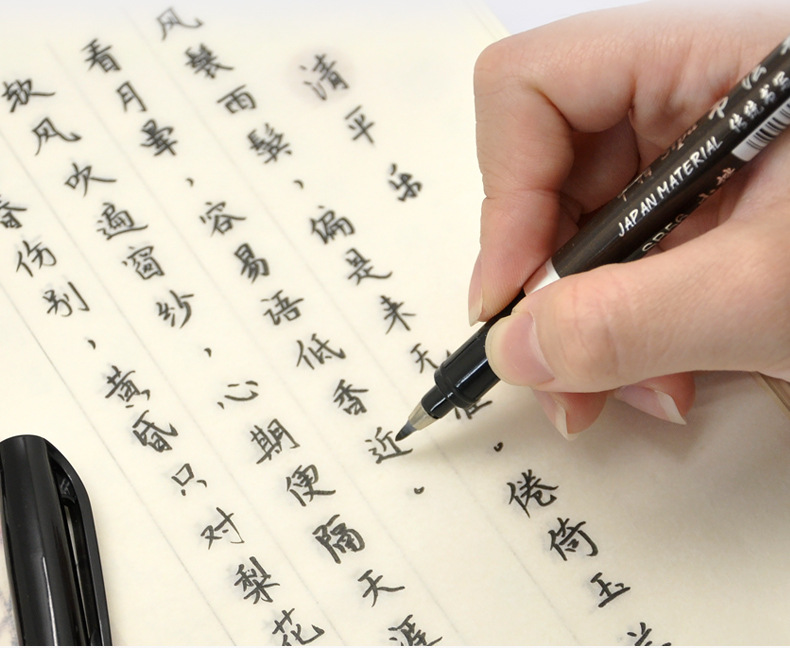 清平乐
风鬟雨鬓，偏是来无。倦倚玉
看月晕，容易语低香近。
软风吹遍窗纱，心期便隔天涯
春伤别，黄昏只对梨花
JAPAN MATERIAL